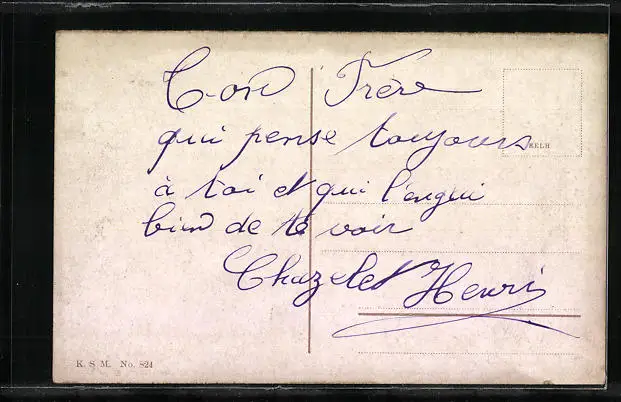 Ton Frère
qui pense toujours
RELH
à toi et qui l'engui
bien de te voir
Chazelet Henri
K. S M. No. 824